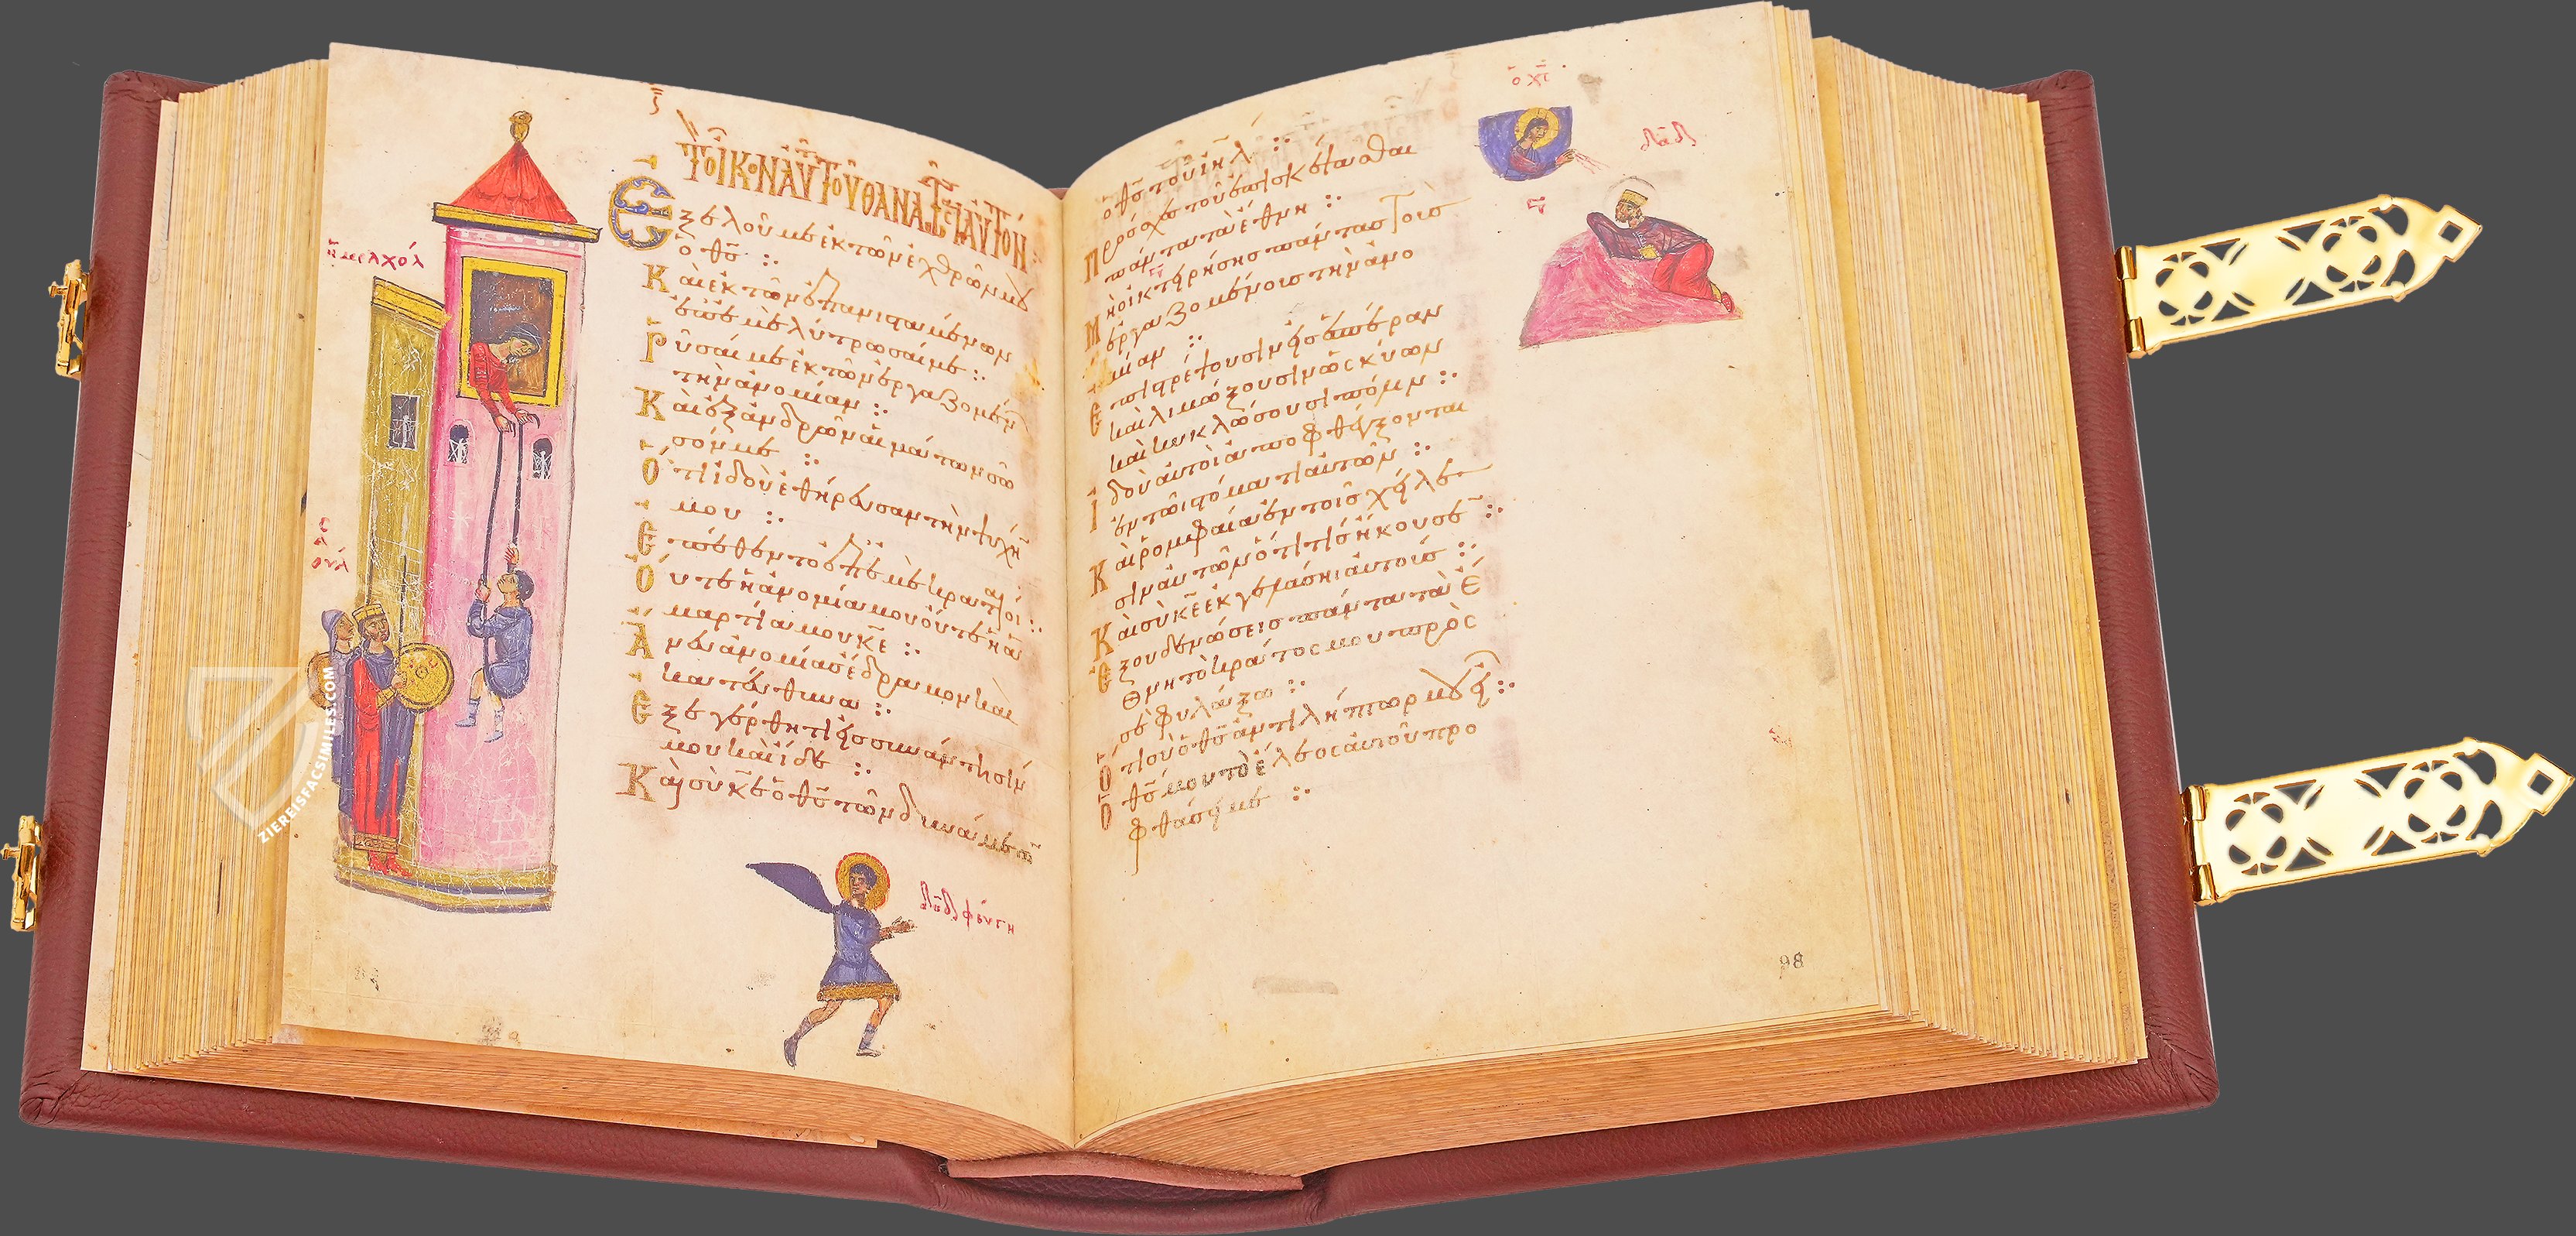 τὸν οἶκον αὐτοῦ θανατῶσαι αὐτόν
Ἐξελοῦ με ἐκ τῶν ἐχθρῶν μου
ὁ θ̅ς̅ :·
Καὶ ἐκ τῶν ἐπανισταμένων
ἐπ' ἐμὲ λύτρωσαί με :·
Ῥῦσαί με ἐκ τῶν ἐργαζομένων
τὴν ἀνομίαν :·
Καὶ ἐξ ἀνδρῶν αἱμάτων σῶ
σόν με :·
Ὅτι ἰδοὺ ἐθήρευσαν τὴν ψυχήν
μου :·
Ἐπέθεντο ἐπ' ἐμὲ κραταιοί :·
Οὔτε ἡ ἀνομία μου οὔτε ἡ ἁ
μαρτία μου κ̅ε̅ :·
Ἄνευ ἀνομίας ἔδραμον καὶ
κατεύθυνα :·
Ἐξεγέρθητι εἰς συνάντησίν
μου καὶ ἴδε :·
Καὶ σὺ κ̅ε̅ ὁ θ̅ς̅ τῶν δυνάμεων
ὁ θ̅ς̅ τοῦ ι̅η̅λ̅ :·
Πρόσχες τοῦ ἐπισκέψασθαι
πάντα τὰ ἔθνη :·
Μὴ οἰκτειρήσῃς πάντας τοὺς
ἐργαζομένους τὴν ἀνο
μίαν :·
Ἐπιστρέψουσιν εἰς ἑσπέραν
καὶ λιμώξουσιν ὡς κύων
καὶ κυκλώσουσι πόλιν :·
Ἰδοὺ αὐτοὶ ἀποφθέγξονται
ἐν τῶι στόματι αὐτῶν :·
Καὶ ῥομφαία ἐν τοῖς χείλε
σιν αὐτῶν ὅτι τίς ἤκουσε :·
Καὶ σὺ κ̅ε̅ ἐκγελάσηι αὐτούς :·
ἐξουδενώσεις πάντα τὰ ἔ
θνη τὸ κράτος μου πρὸς
σὲ φυλάξω :·
Ὅτι σὺ ὁ θ̅ς̅ ἀντιλήπτωρ μου εἶ :·
Ὁ θ̅ς̅ μου τὸ ἔλεος αὐτοῦ προ
φθάσει με :·
ὁ χ̅ς̅
δ̅α̅δ̅
98
ZIEREISFACSIMILES.COM